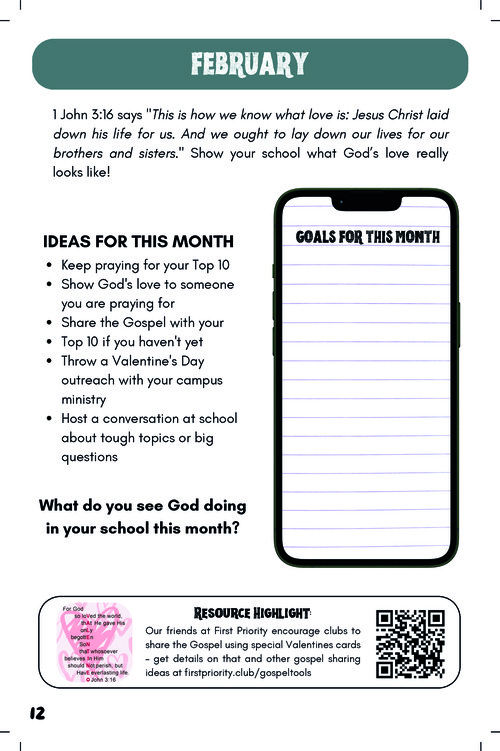 FEBRUARY
1 John 3:16 says "This is how we know what love is: Jesus Christ laid
down his life for us. And we ought to lay down our lives for our
brothers and sisters." Show your school what God's love really
looks like!
IDEAS FOR THIS MONTH
• Keep praying for your Top 10
• Show God's love to someone
you are praying for
• Share the Gospel with your
• Top 10 if you haven't yet
• Throw a Valentine's Day
outreach with your campus
ministry
• Host a conversation at school
about tough topics or big
questions
What do you see God doing
in your school this month?
GOALS FOR THIS MONTH
For God
so loVed the world,
thAt He gave His
onLy
begottEn
SoN
thaT whosoever
believes In Him
should Not perish, but
HavE everlasting life.
John 3:16
RESOURCE HIGHLIGHT:
Our friends at First Priority encourage clubs to
share the Gospel using special Valentines cards
- get details on that and other gospel sharing
ideas at firstpriority.club/gospeltools
12